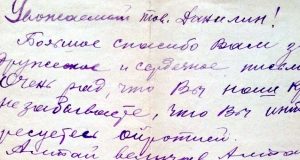 Уважаемый тов. Данилин!
Большое спасибо Вам з
дружеское и сердечное письмо
Очень рад, что Вы наши
не забываете, что Вы инт
ресуетесь ойротией.
Алтай